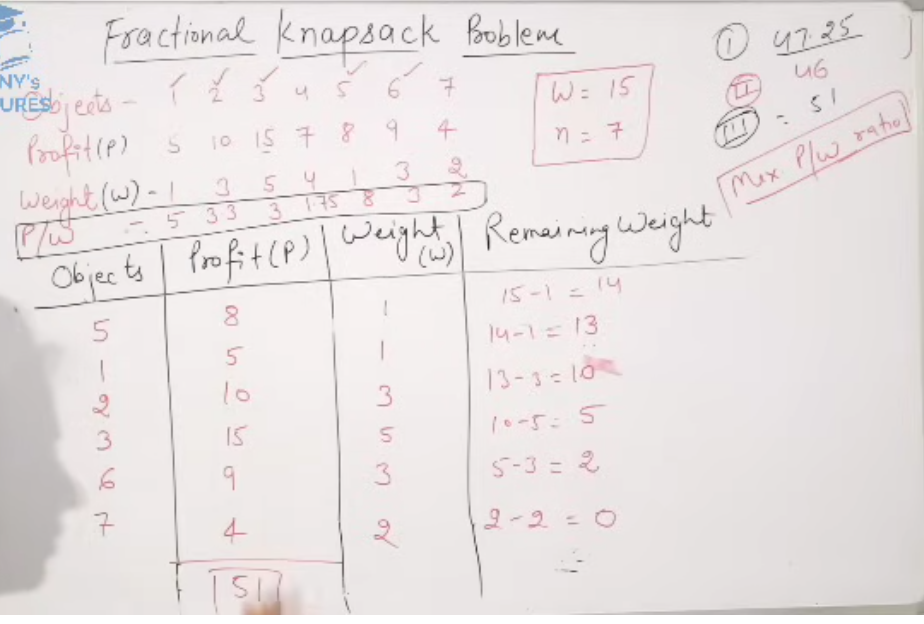 Fractional Knapsack Problem
NY's
URES
Objects - 1 2 3 4 5 6 7
Profit (P) 5 10 15 7 8 9 4
Weight (W) - 1 3 5 4 1 3 2
P/W :- 5 3.3 3 1.75 8 3 2
W = 15
n = 7
I 47.25
II 46
III = 51
Max P/W ratio
Objects Profit (P) Weight (W) Remaining Weight
5 8 1 15-1 = 14
1 5 1 14-1 = 13
2 10 3 13-3 = 10
3 15 5 10-5 = 5
6 9 3 5-3 = 2
7 4 2 2-2 = 0
51